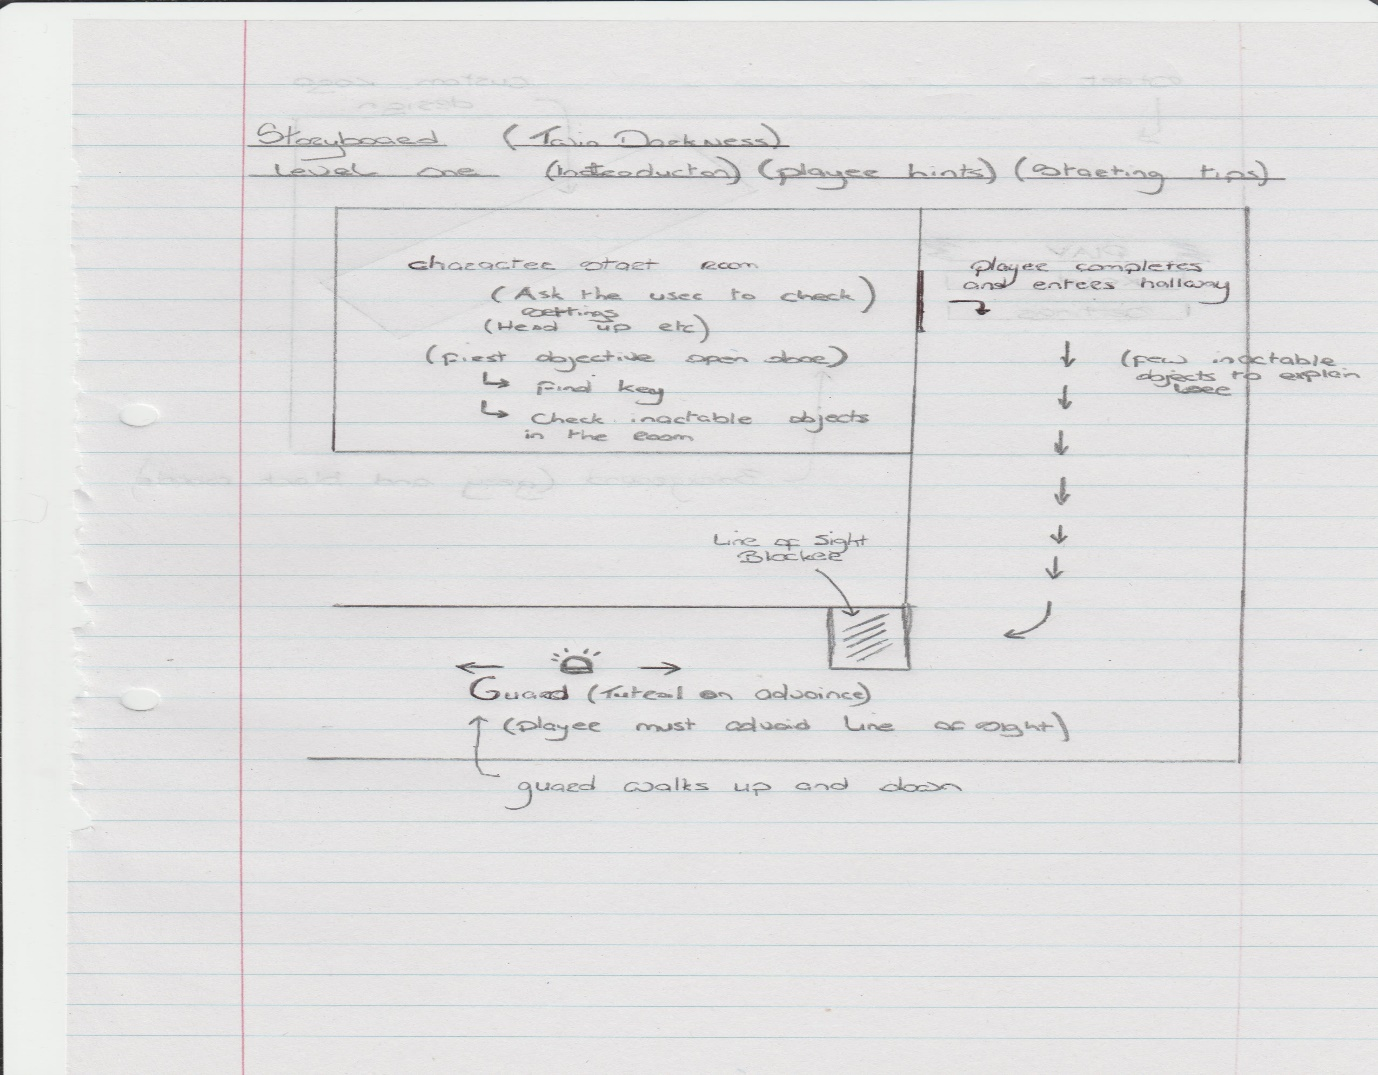 Storyboard (Twin Darkness)
Level one (introducton) (player hints) (starting tips)
character start room
(Ask the user to check)
settings
(Head up etc)
(first objective open door)
Find key
Check inactable objects
in the room
player completes
and enters hallway
(few inactable
objects to explain
Line of Sight
Blocker
Guard (Tutoral on advoince)
(player must advoid Line of sight)
guard walks up and down